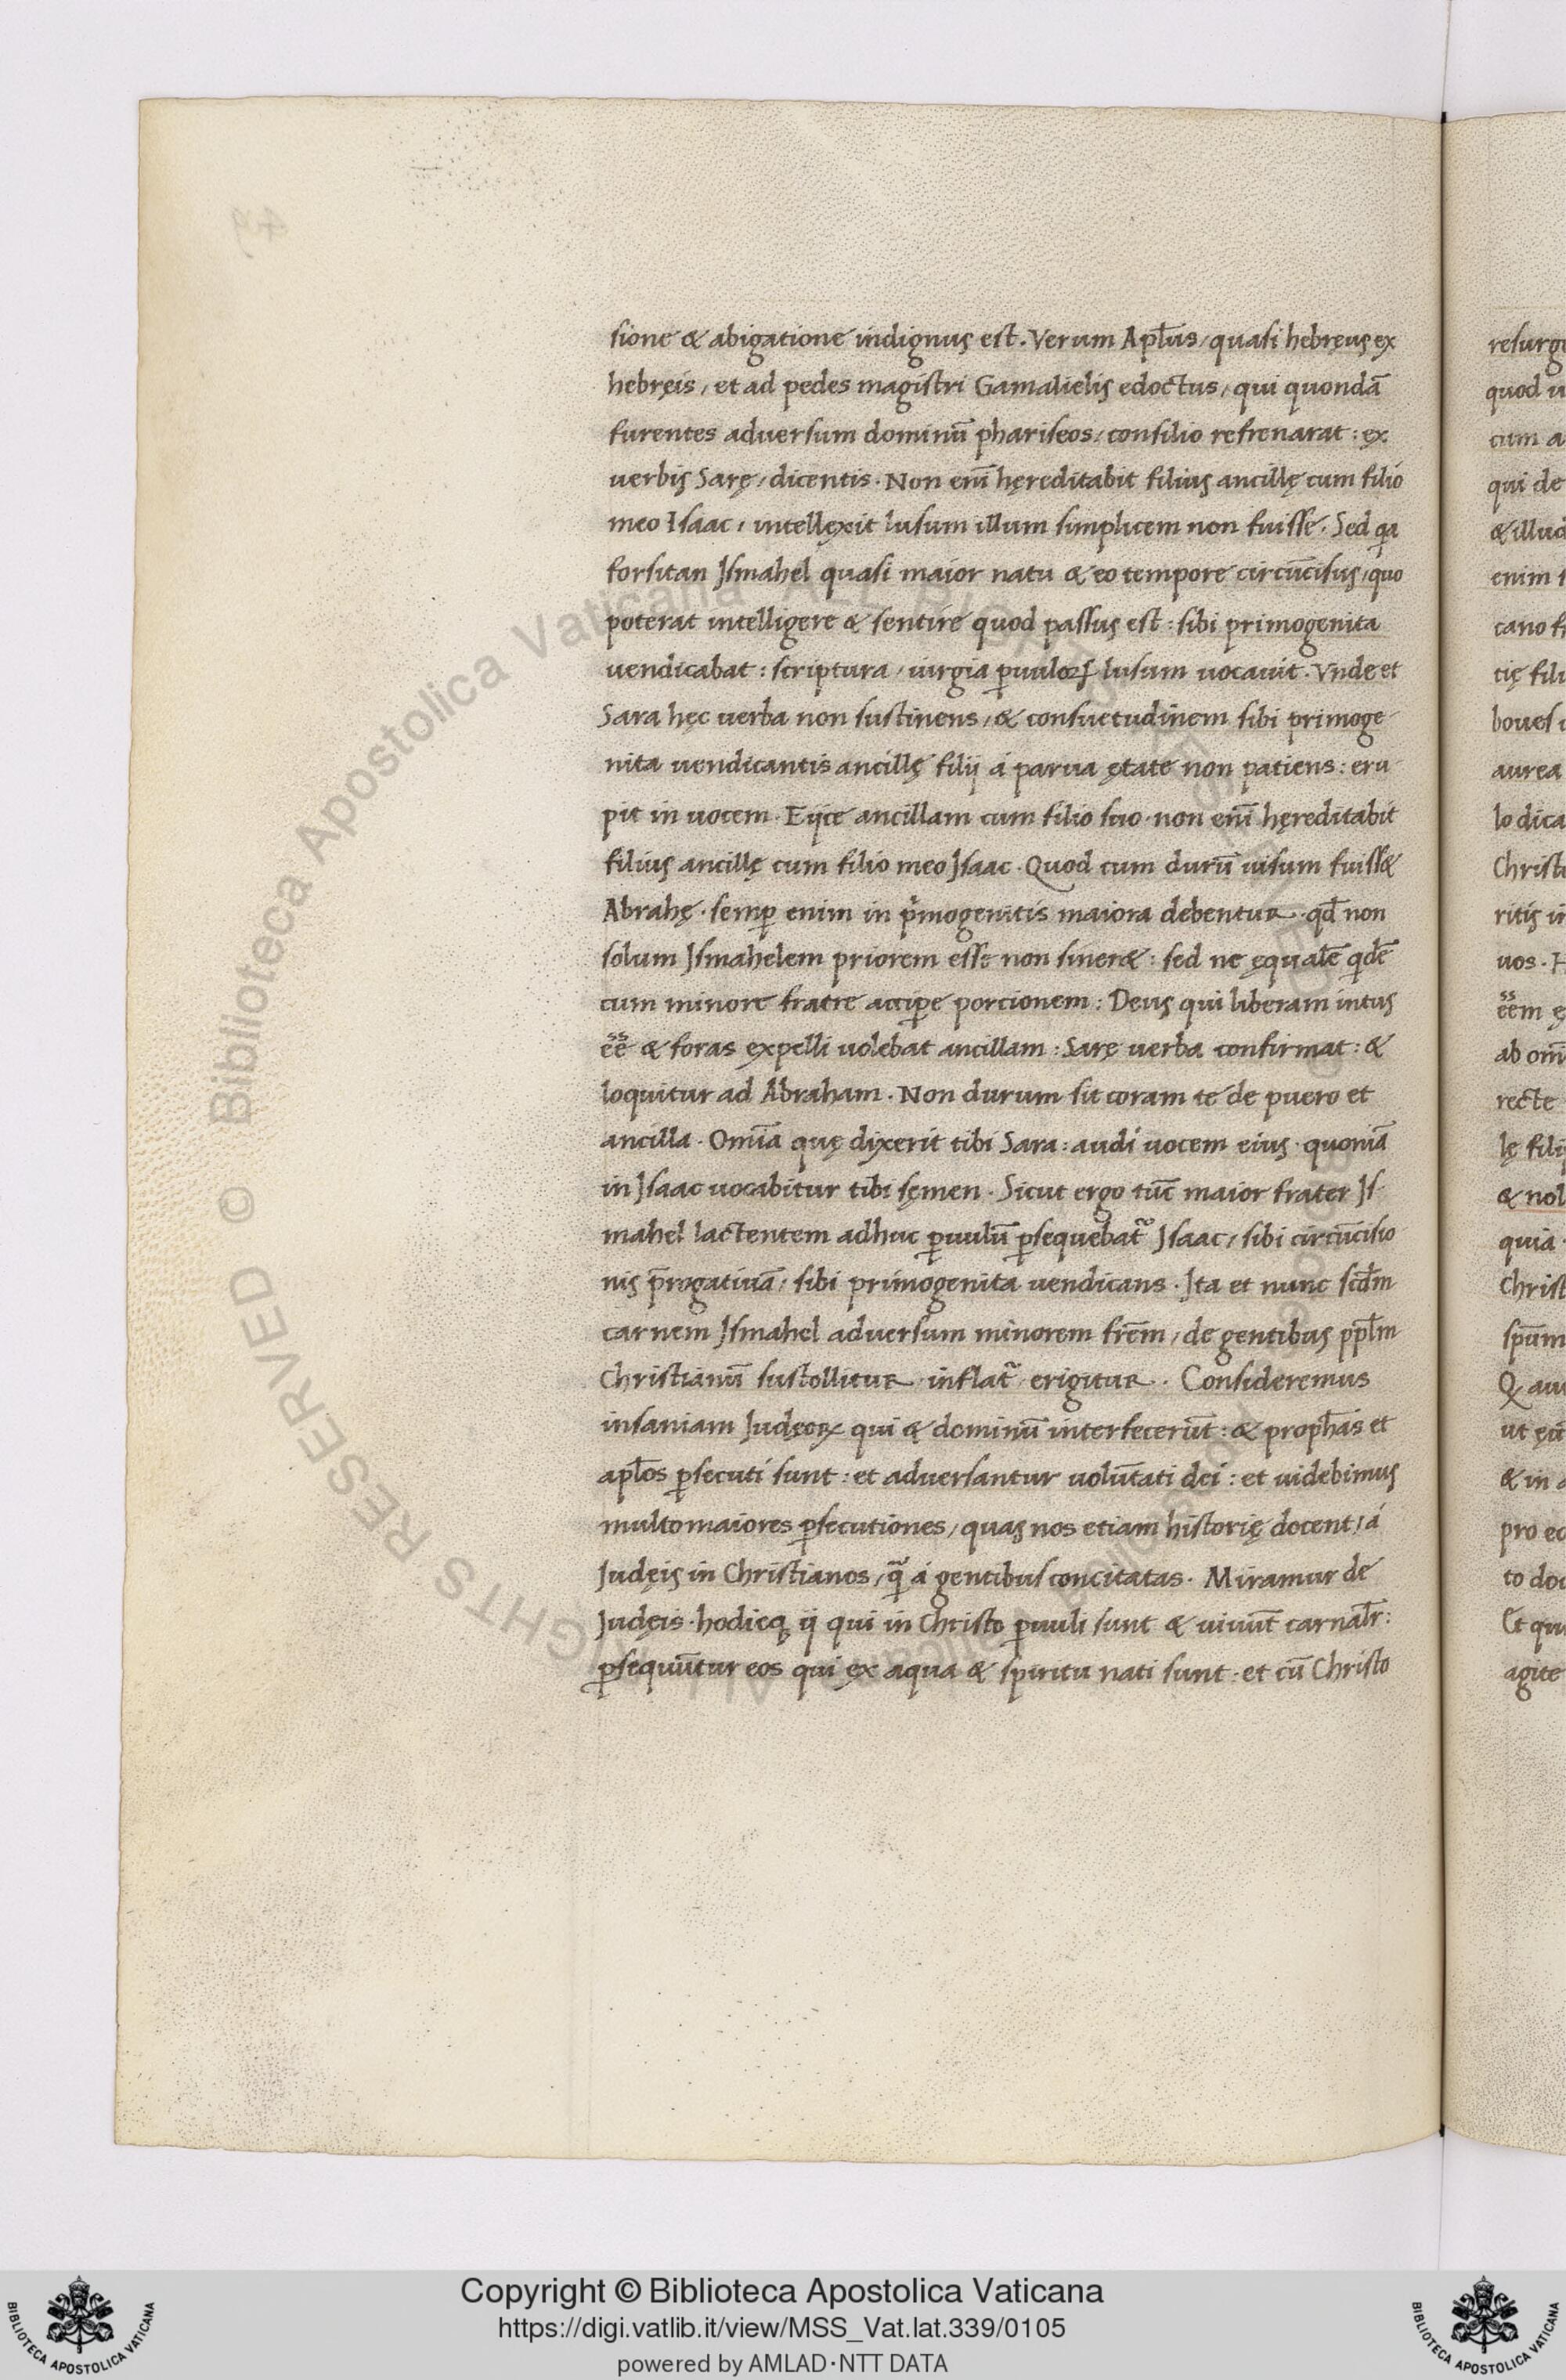 sione & abigatione indignus est. Verum Apl̅us, quasi hebręus ex
hebręis, et ad pedes magistri Gamalielis edoctus, qui quondā
furentes adversum dominū phariseos, consilio refrenarat: ex
uerbis Sarę, dicentis. Non eni̅ hęreditabit filius ancillę cum filio
meo Isaac, intellęxit lusum illum simplicem non fuisse. Sed qa
forsitan Ismahel quasi maior natu & eo tempore circūcisus, quo
poterat intelligere & sentire quod passus est: sibi primogenita
uendicabat: scriptura, iurgia ꝑuuloꝝ lusum uocauit. Vnde et
Sara hęc uerba non sustinens, & consuetudinem sibi primoge
nita uendicantis ancillę filij á parua ętate non patiens: eru
pit in uocem. Eijce ancillam cum filio suo. non eni̅ hęreditabit
filius ancillę cum filio meo Isaac. Quod cum durū uisum fuiss&
Abrahę. semꝑ enim in pͥmogenitis maiora debentur. qd̅ non
solum Ismahelem priorem esse non siner&: sed ne ęqualē qdē
cum minore fratre acciꝑe porcionem: Deus qui liberam intus
eē & foras expelli uolebat ancillam: Sarę uerba confirmat: &
loquitur ad Abraham. Non durum sit coram te de puero et
ancilla. Omi̅a quę dixerit tibi Sara: audi uocem eius. quoniā
in Isaac uocabitur tibi sęmen. Sicut ergo tūc maior frater Is
mahel lactentem adhuc ꝑuulū ꝑsequebat᷑ Isaac, sibi circūcisio
nis p̅rogatiuā, sibi primogenita uendicans. Ita et nunc scd̅m
carnem Ismahel adversum minorem frēm, de gentibus ppl̅m
Christianū sustollitur. inflat᷑. erigitur. Consideremus
insaniam Iudęoꝝ qui & dominū interfecerūt: & proph̅as et
apl̅os ꝑsecuti sunt: et adversantur volūtati dei: et uidebimus
multo maiores ꝑsecutiones, quas nos etiam historię docent, á
Iudęis in Christianos, qᷓ á gentibus concitatas. Miramur de
Iudęis. hodieq; ij qui in Christo ꝑuuli sunt & uiuūt carnal̅r:
ꝑsequūtur eos qui ex aqua & spiritu nati sunt. et cū Christo
resurg
quod u
cum a
qui de
& illud
enim
cano f
tię fili
boues
aurea
lo dica
Christ
ritis
uos.
ab omi̅
recte
lę fili
& nol
quia
Christ
sp̅um
au
ut
& in
pro ec
to do
Et qu
agite
© Biblioteca Apostolica Vaticana ALL RIGHTS RESERVED
Copyright © Biblioteca Apostolica Vaticana
https://digi.vatlib.it/view/MSS_Vat.lat.339/0105
powered by AMLAD·NTT DATA
BIBLIOTECA APOSTOLICA VATICANA
BIBLIOTECA APOSTOLICA VATICANA